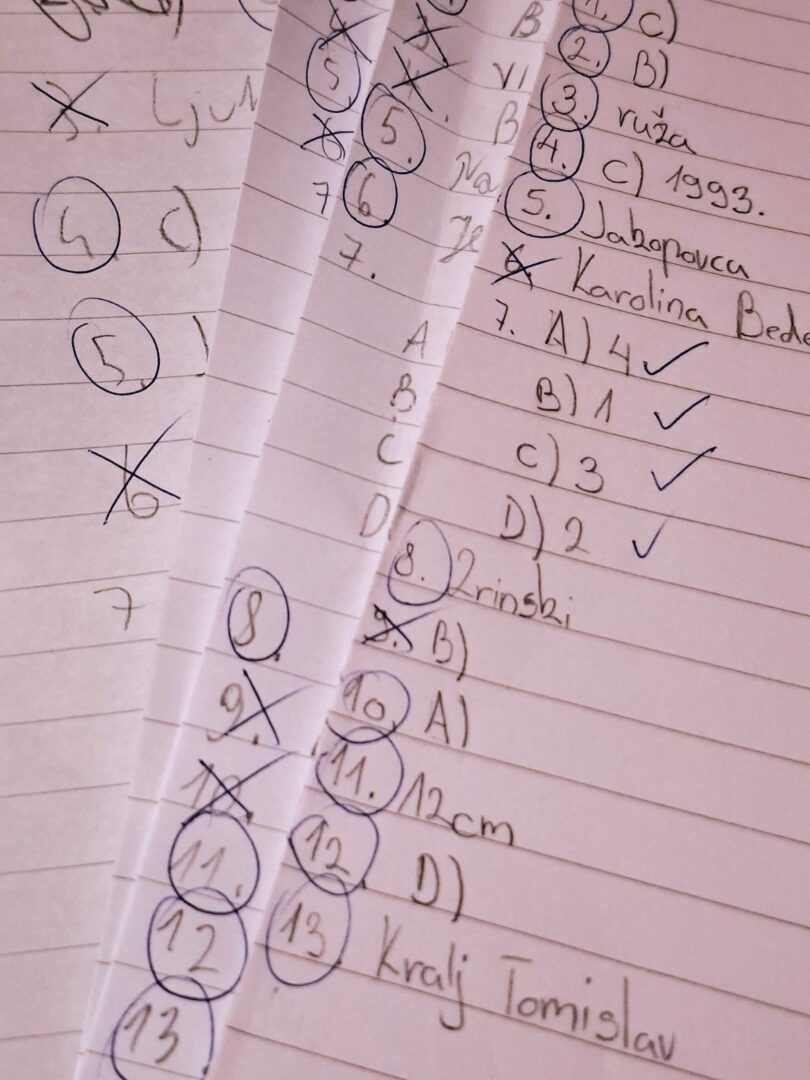 1. C)
2. B)
3. ruža
4. C) 1993.
5. Jabopovca
6. Karolina Bede
7. A) 4 ✓
B) 1 ✓
C) 3 ✓
D) 2 ✓
8. Zrinski
9. B)
10. A)
11. 12cm
12. D)
13. Kralj Tomislav
B
VI
5. B
6. Na
7. Je
A
B
C
D
8.
9.
10.
11.
12
13
5.
6
7
3. Ljub
4. C)
5.
6
7